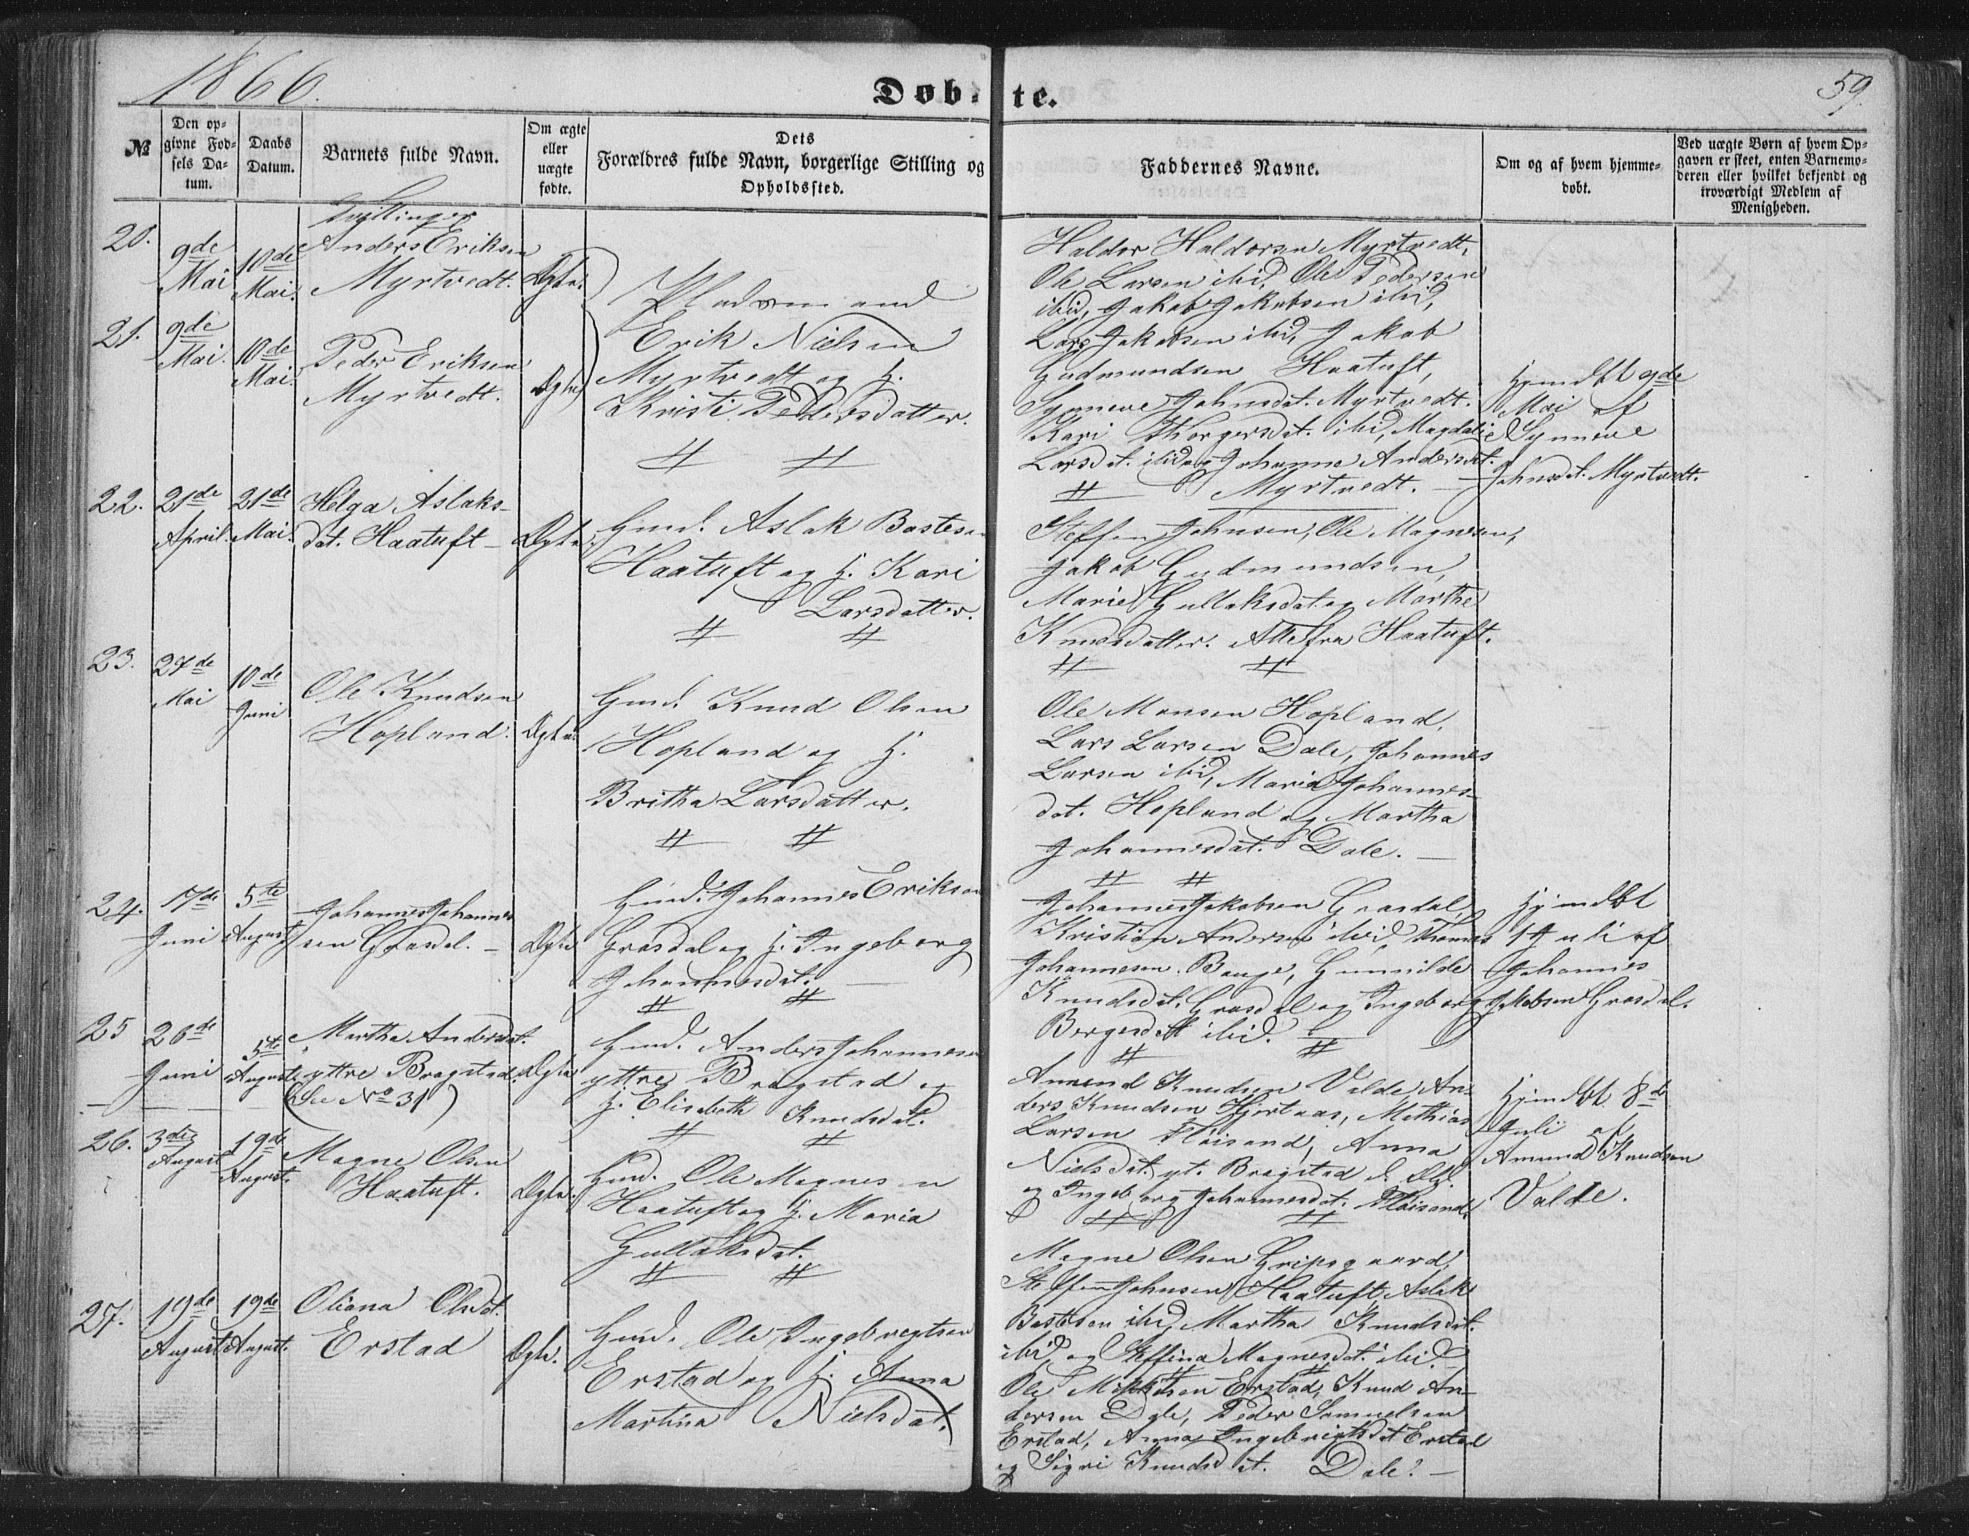 1866.
Døbte.
59.
№
Den opgivne Fødsels Datum.
Daabs Datum.
Barnets fulde Navn.
Om ægte eller uægte fødte.
Dets Forældres fulde Navn, borgerlige Stilling og Opholdssted.
Faddernes Navne.
Om og af hvem hjemmedøbt.
Ved uægte Børn af hvem Opgaven er skeet, enten Barnemoderen eller hvilket bekjendt og troværdigt Medlem af Menigheden.
20.
9de
Mai
10de
Mai.
Tvillinger
Anders Eriksen
Myrtvedt.
Ægte.
21.
9de
Mai.
10de
Mai.
Peder Eriksen
Myrtvedt.
Ægte
Pladsmand
Erik Nielsen
Myrtvedt og H.
Kristi Pedersdatter.
Haldor Haldorsen Myrtvedt,
Ole Larsen ibid, Ole Pedersen
ibid, Jakob Jakobsen ibid,
Lars Jakobsen ibid, Jakob
Gudmundsen Haatuft,
Synneve Johnsdat. Myrtvedt.
Kari Thorgersdat. ibid, Magdali
Larsdat. ibid og Johanne Andersdat.
Myrtvedt. —
Hjemdbt 9de
Mai af
Synneve
Johnsdat. Myrtvedt.
22.
21de
April.
21de
Mai.
Helga Aslaks-
dat. Haatuft —
Ægte.
Gmd. Aslak Bastesen
Haatuft og H. Kari
Larsdatter.
Steffen Johnsen, Ole Magnesen,
Jakob Gudmundsen,
Marie Gullaksdat og Marthe
Knudsdatter. Alle fra Haatuft.
23.
27de
Mai
10de
Juni
Ole Knudsen
Hopland.
Ægte.
Gmd. Knud Olsen
Hopland og H.
Britha Larsdatter.
Ole Monsen Hopland,
Lars Larsen Dale, Johannes
Larsen ibid, Maria Johannes-
dat. Hopland og Martha
Johannesdat. Dale. —
24.
17de
Juni
5te
August
Johannes Johannes-
sen Grasdal. —
Ægte
Gmd. Johannes Eriksen
Grasdal og H. Ingeborg
Johannesdat. —
Johannes Jakobsen Grasdal,
Kristian Andersen ibid, Thomas
Johannesen Bauge, Gunnilde
Knudsdat. Grasdal og Ingeborg
Bergesdtt ibid.
Hjemdbt
1 Juli af
Johannes
Jakobsen Grasdal.
25
26de
Juni
5te
August
Martha Andersdat.
yttre Bragstad.
(See No 31)
Ægte
Gmd. Anders Johannesen
yttre Bragstad og
H. Elisabeth Knudsdat.
Amund Knudsen Valde, An-
ders Knudsen Hjortaas, Mathias
Larsen Fløisand, Anna
Nielsdat yt. Bragstad
og Ingeborg Johannesdat. Fløisand.
Hjemdbt 8de
Juli af
Amund Knudsen
Valde.
26.
3die
August
19de
August.
Magne Olsen
Haatuft.
Ægte.
Gmd. Ole Magnesen
Haatuft og H. Maria
Gullaksdat.
Magne Olsen Gripsgaard,
Steffen Johnsen Haatuft, Aslak
Bastesen ibid, Martha Knudsdat.
ibid og Steffina Magnesdat ibid. —
27.
19de
August
19de
August.
Oliana Olsdat.
Erstad
Ægte.
Gmd. Ole Ingebregtsen
Erstad og H. Anna
Martina Nielsdat.
Ole Mikkelsen Erstad, Knud An-
dersen Dale, Peder Samuelsen
Erstad, Anna Ingebrigtsdt Erstad
og Sigri Knudsdat. Dale. —